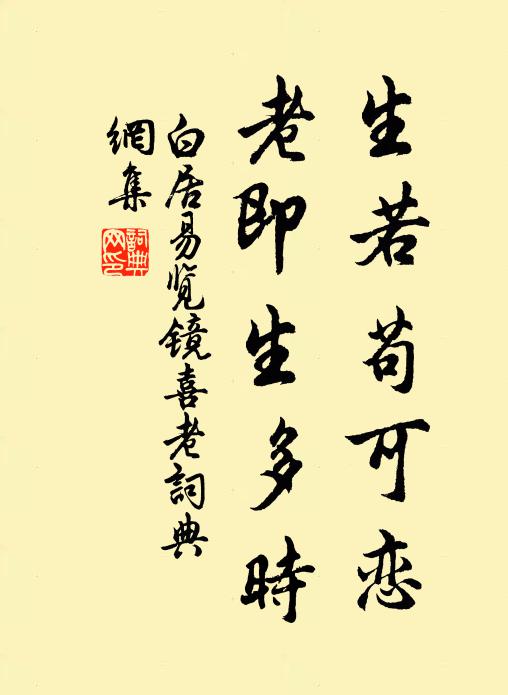 生若苟可恋
老即生多時
白居易览镜喜老詞典
網集
詞典
网印